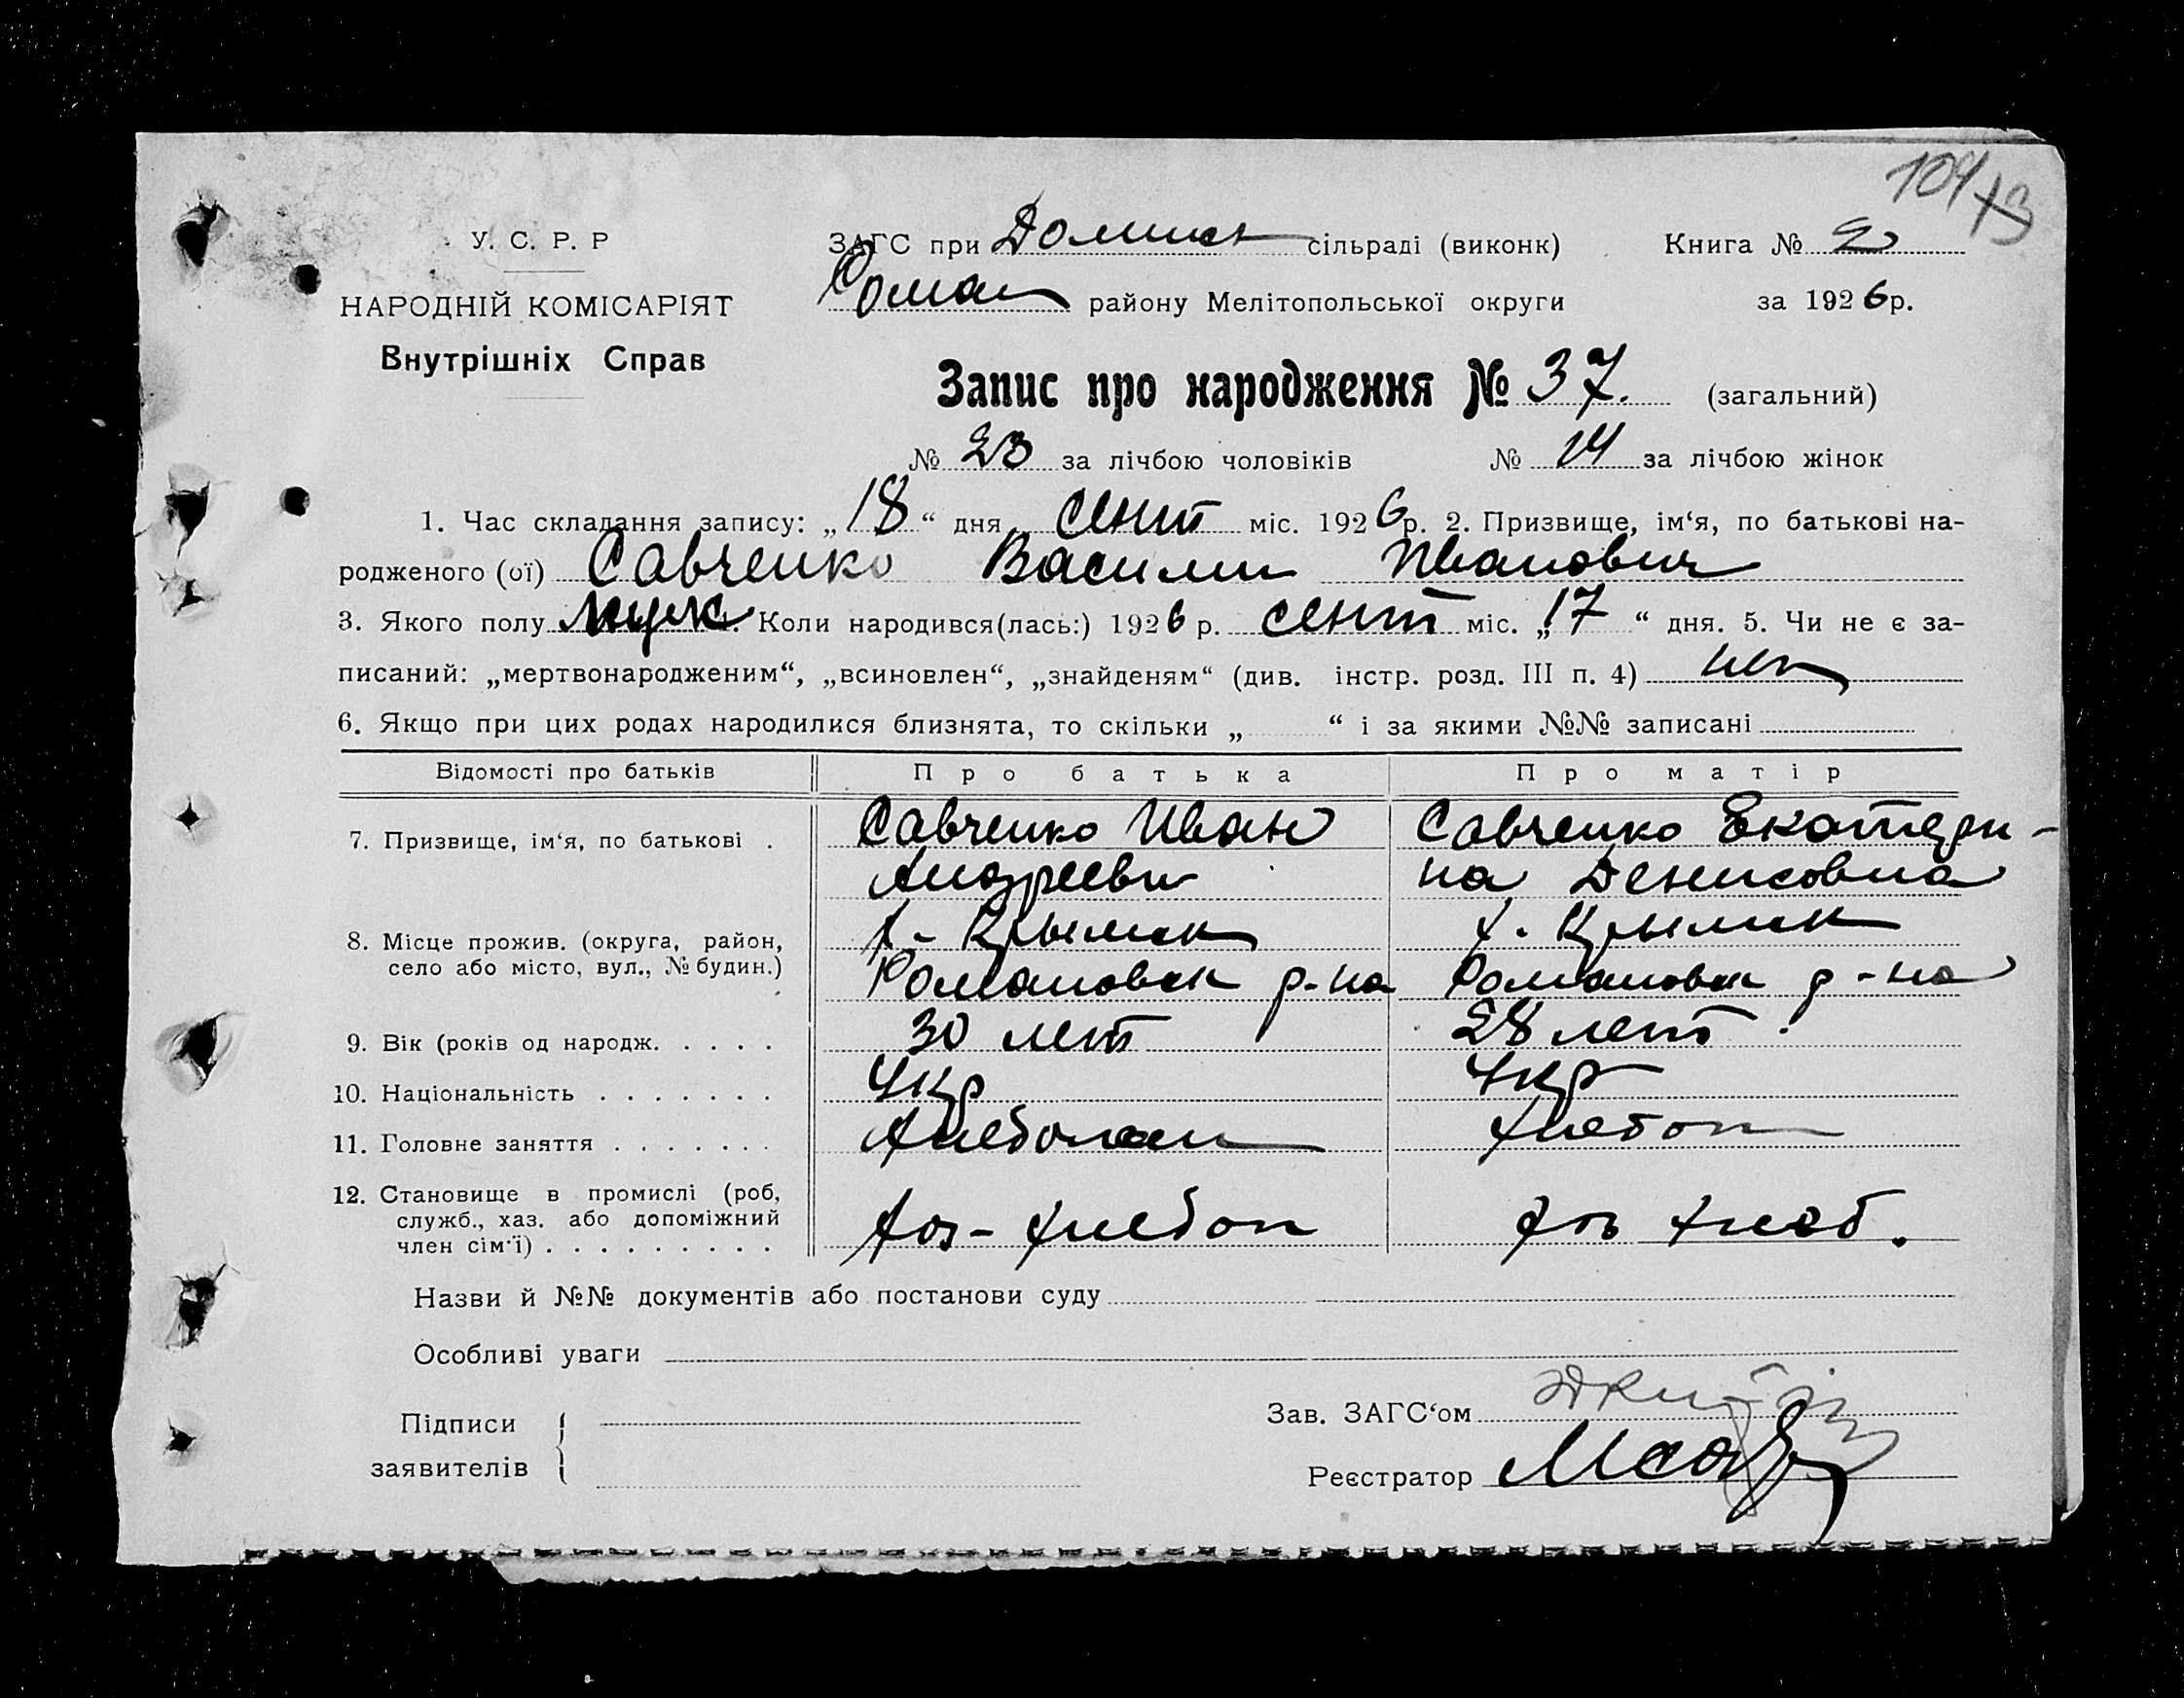 104
73
У. С. Р. Р
НАРОДНІЙ КОМІСАРІЯТ
Внутрішніх Справ
ЗАГС при сільраді (виконк) Книга № 2
Роман району Мелітопольської округи за 1926 р.
Запис про народження № 37. (загальний)
№ 23 за лічбою чоловіків № 14 за лічбою жінок
1. Час складання запису: „18“ дня сент міс. 1926 р. 2. Призвище, ім‘я, по батькові на-
родженого (ої) Савченко Васили Иванович
3. Якого полу муж 4. Коли народився(лась:) 1926 р. сент міс. „17“ дня. 5. Чи не є за-
писаний: „мертвонародженим“, „всиновлен“, „знайденям“ (див. інстр. розд. III п. 4) нет
6. Якщо при цих родах народилися близнята, то скільки „ “ і за якими №№ записані
Відомості про батьків Про батька Про матір
7. Призвище, ім‘я, по батькові . Савченко Иван Савченко Екатери-
Андрееви на Денисовна
8. Місце прожив. (округа, район, х-Крымск х. Крымск
село або місто, вул., № будин.) Романовск р-на Романовск р-на
9. Вік (років од народж. . . . . 30 лет 28 лет
10. Національність . . . . . . . Укр Укр
11. Головне заняття . . . . . . . Хлебопаш Хлебоп
12. Становище в промислі (роб,
служб., хаз. або допоміжний Хоз-хлебоп хоз хлеб.
член сім‘ї) . . . . . . . . .
Назви й №№ документів або постанови суду
Особливі уваги
Підписи
заявителів
Зав. ЗАГС‘ом
Реєстратор